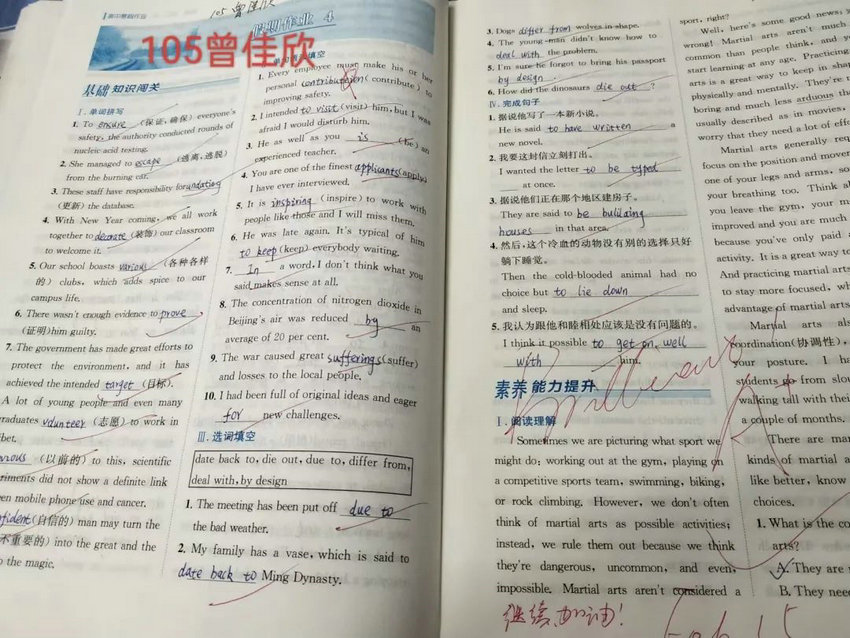 高中寒假作业
105 曾佳欣
105曾佳欣
假期作业 4
基础知识闯关
Ⅰ.单词拼写
1. To ensure (保证,确保) everyone's
safety, the authority conducted rounds of
nucleic acid testing.
2. She managed to escape (逃离,逃脱)
from the burning car.
3. These staff have responsibility for undating
(更新) the database.
4. With New Year coming, we all work
together to decorate (装饰) our classroom
to welcome it.
5. Our school boasts various (各种各样
的) clubs, which adds spice to our
campus life.
6. There wasn't enough evidence to prove
(证明)him guilty.
7. The government has made great efforts to
protect the environment, and it has
achieved the intended target (目标).
A lot of young people and even many
raduates vdunteer (志愿) to work in
bet.
vious (以前的) to this, scientific
riments did not show a definite link
en mobile phone use and cancer.
fident(自信的) man may turn the
不重要的) into the great and the
o the magic.
单句语法填空
1. Every employee must make his or her
personal contributeion( contribute ) to
improving safety.
2. I intended to visit (visit) him, but I was
afraid I would disturb him.
3. He as well as you is (be) an
experienced teacher.
4. You are one of the finest applicants(apply)
I have ever interviewed.
5. It is inspiring (inspire) to work with
people like those and I will miss them.
6. He was late again. It's typical of him
to keep (keep) everybody waiting.
7. In a word, I don't think what you
said makes sense at all.
8. The concentration of nitrogen dioxide in
Beijing's air was reduced by an
average of 20 per cent.
9. The war caused great sufferings(suffer)
and losses to the local people.
10. I had been full of original ideas and eager
for new challenges.
Ⅲ.选词填空
date back to, die out, due to, differ from,
deal with, by design
1. The meeting has been put off due to
the bad weather.
2. My family has a vase, which is said to
date back to Ming Dynasty.
3. Dogs differ from wolves in shape.
4. The young man didn't know how to
deal with the problem.
5. I'm sure he forgot to bring his passport
by design.
6. How did the dinosaurs die out ?
Ⅳ.完成句子
1. 据说他写了一本新小说。
He is said to have written a
new novel.
2. 我要这封信立刻打出。
I wanted the letter to be typed
at once.
3. 据说他们正在那个地区建房子。
They are said to be bulilding
houses in that area.
4. 然后,这个冷血的动物没有别的选择只好
躺下睡觉。
Then the cold-blooded animal had no
choice but to lie down
and sleep.
5. 我认为跟他和睦相处应该是没有问题的。
I think it possible to get on well
with him.
素养能力提升
Ⅰ.阅读理解
Sometimes we are picturing what sport we
might do: working out at the gym, playing on
a competitive sports team, swimming, biking,
or rock climbing. However, we don't often
think of martial arts as possible activities;
instead, we rule them out because we think
they're dangerous, uncommon, and even,
impossible. Martial arts aren't considered a
继续加油!
sport, right?
Well, here's some good news:
wrong! Martial arts aren't much
common than people think, and y
start learning at any age. Practicing
arts is a great way to keep in shap
physically and mentally. They're
boring and much less arduous th
usually described as in movies,
worry that they need a lot of effo
Martial arts generally req
focus on the position and mover
one of your legs and arms, so
your breathing too. Think ab
you leave the gym, your m
improved and you are much
because you've only paid a
activity. It is a great way to
And practicing martial arts
to stay more focused, wh
advantage of martial arts
Martial arts also
coordination(协调性),
your posture. I ha
students go from slou
walking tall with thei
a couple of months.
There are man
kinds of martial a
like better, know
choices.
1. What is the co
arts?
A. They are
B. They need